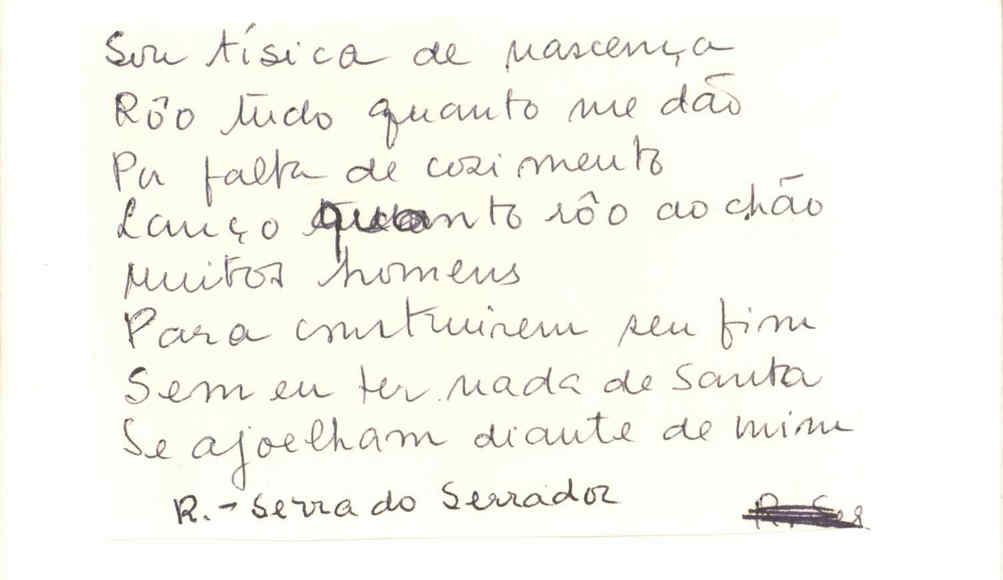 Sou tísica de nascença
Rôo tudo quanto me dão
Por falta de cozimento
Lanço quanto rôo ao chão
Muitos homens
Para construirem seu fim
Sem eu ter nada de santa
Se ajoelham diante de mim
R. - Serra do Serrador
R. Ser